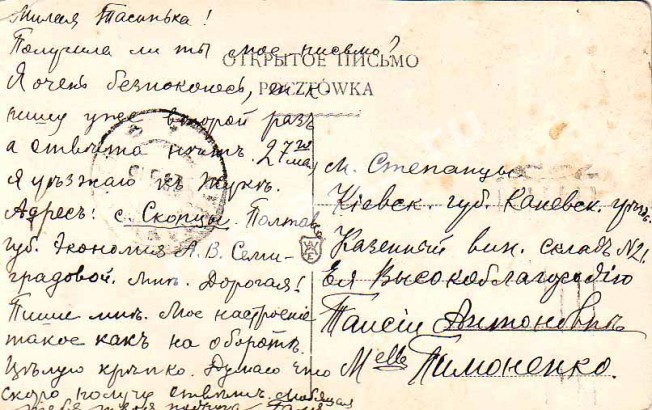 Милая Тасинька!
Получила ли ты мое письмо?
ОТКРЫТОЕ ПИСЬМО
POCZTÓWKA
Я очень безпокоюсь,
пишу уже второй разъ
а отвѣта нѣтъ. 27го мая
я уѣзжаю къ
Адресъ: с. Скопцы. Полтавс
губ. Экономія А. В. Семи-
градовой. Мнѣ. Дорогая!
Пиши мнѣ. Мое настроеніе
такое какъ на оборотѣ.
Цѣлую крѣпко. Думаю что
скоро получу отвѣтъ. Любящая
тебя твоя подруга
м. Степанцы
Кіевск. губ. Каневск. уѣздъ.
Казенный вин. складъ №21.
Ея Высокоблагородію
Таисіи Антоновнѣ
Melle Тимоненко.